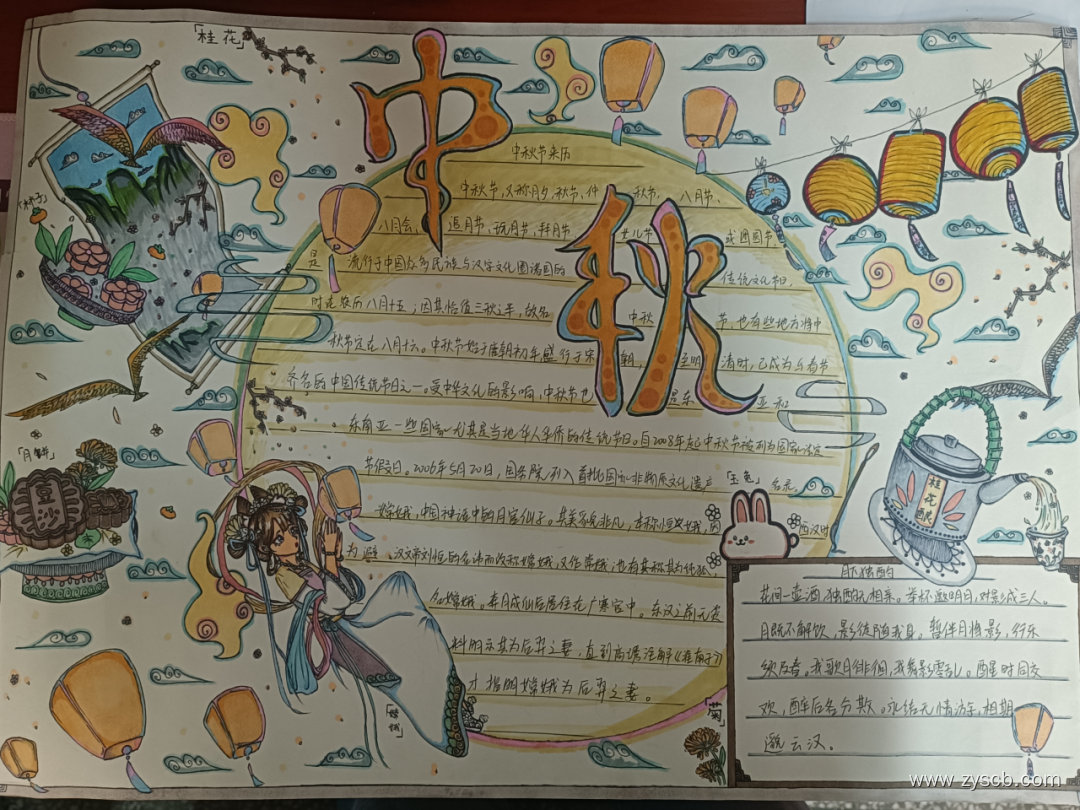 「桂花」
中秋
中秋节来历
中秋节,又称月夕、秋节、仲秋节、八月节、
八月会、追月节、玩月节、拜月节、女儿节或团圆节,
是流行于中国众多民族与汉字文化圈诸国的传统文化节日,
时在农历八月十五;因其恰值三秋之半,故名中秋节,也有些地方将中
秋节定在八月十六。中秋节始于唐朝初年,盛行于宋朝,至明清时,已成为与春节
齐名的中国传统节日之一。受中华文化的影响,中秋节也是东 亚和
东南亚一些国家尤其是当地华人华侨的传统节日。自2008年起中秋节被列为国家法定
节假日。2006年5月20日,国务院列入首批国家非物质文化遗产名录
嫦娥,中国神话中的月宫仙子。其美貌非凡,本称姮娥,因西汉时
为避 汉文帝刘恒的名讳而改称嫦娥,又作常娥,也有
嫦娥。奔月成仙后居住在广寒宫中。东汉之前无资
料明示其为后羿之妻,直到高诱注解《淮南子》
才指明嫦娥为后羿之妻。
「柿子」
「月饼」
豆沙
「玉兔」
「嫦娥」
桂花酿
月下独酌
花间一壶酒,独酌无相亲。举杯邀明月,对影成三人。
月既不解饮,影徒随我身。暂伴月将影,行乐
须及春。我歌月徘徊,我舞影零乱。醒时同交
欢,醉后各分散。永结无情游,相期
邈云汉。
www.zyscb.com